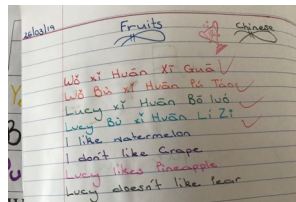 26/03/19
Fruits
Chinese
Wǒ xǐ Huān Xī Guā
Wǒ Bù xǐ Huān Pú Táo
Lucy xǐ Huān Bō luó
Lucy Bù xǐ Huān Lí Zi
I like watermelon
I don't like Grape
Lucy likes Pineapple
Lucy doesn't like Pear